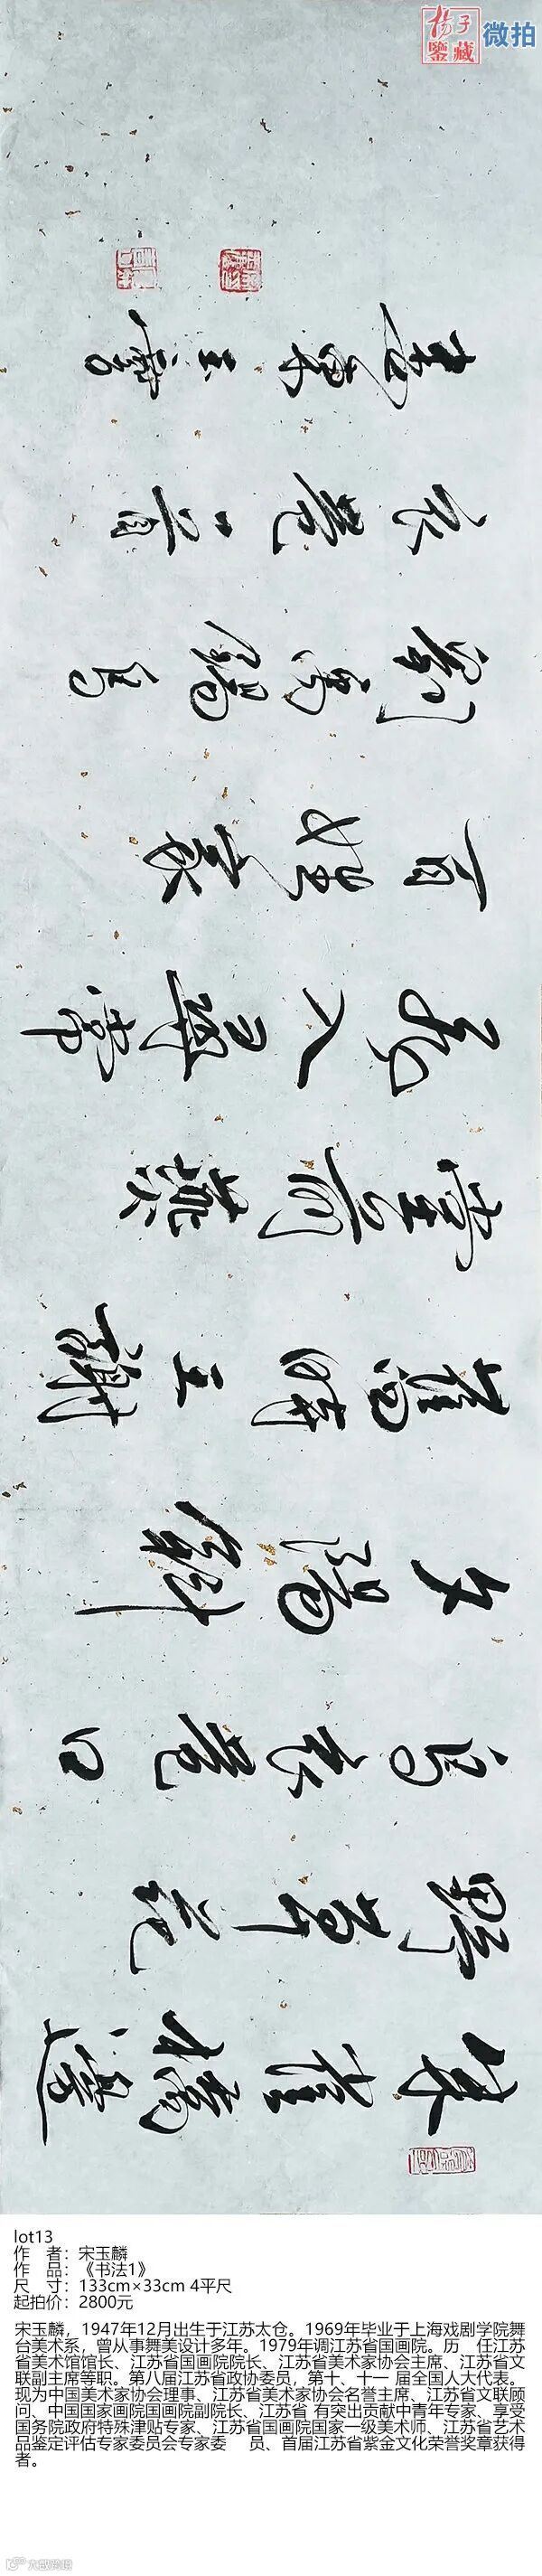 楊子
鑒藏
微拍
朱雀橋邊
野草花
烏衣巷口
夕陽斜
舊時王謝
堂前燕
飛入尋常
百姓家
劉禹錫烏
衣巷一首
書宋玉麐
lot13
作 者：宋玉麟
作 品：《书法1》
尺 寸：133cm×33cm 4平尺
起拍价：2800元
宋玉麟，1947年12月出生于江苏太仓。1969年毕业于上海戏剧学院舞
台美术系，曾从事舞美设计多年。1979年调江苏省国画院。历 任江苏
省美术馆馆长、江苏省国画院院长、江苏省美术家协会主席、江苏省文
联副主席等职。第八届江苏省政协委员，第十、十一 届全国人大代表。
现为中国美术家协会理事、江苏省美术家协会名誉主席、江苏省文联顾
问、中国国家画院国画院副院长、江苏省 有突出贡献中青年专家、享受
国务院政府特殊津贴专家、江苏省国画院国家一级美术师、江苏省艺术
品鉴定评估专家委员会专家委 员、首届江苏省紫金文化荣誉奖章获得
者。